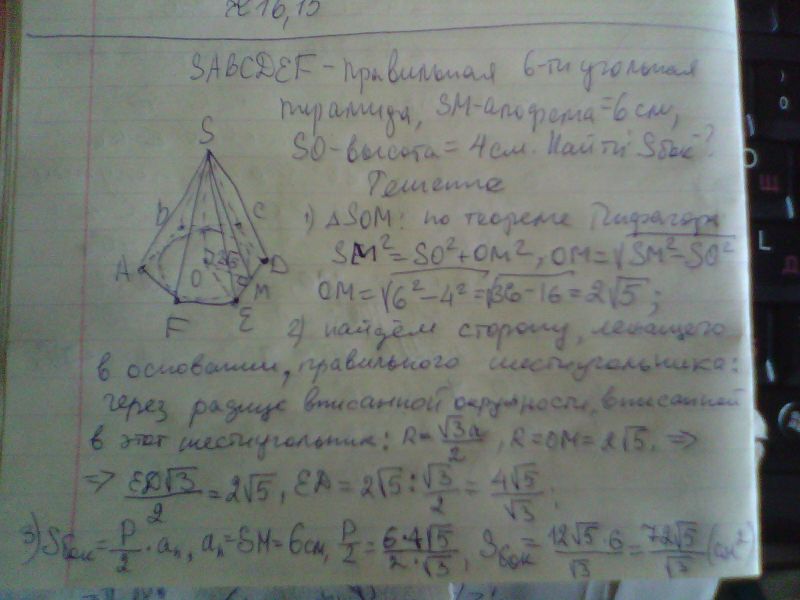 № 16,15
SABCDEF - правильная 6-ти угольная
пирамида, SM-апофема=6 см,
SO-высота=4см. Найти Sбок-?
Решение
1) △SOM: по теореме Пифагора
SM²=SO²+OM², OM=√SM²-SO²
OM=√6²-4²=√36-16=2√5;
2) найдём сторону, лежащего
в основании, правильного шестиугольника:
через радиус вписанной окружности, вписанной
в этот шестиугольник: R=√3a/2, R=OM=2√5. =>
=> ED√3/2=2√5, ED=2√5:√3/2=4√5/√3;
3) Sбок=P/2·aₙ, aₙ=SM=6см, P/2=6·4√5/2·√3, Sбок=12√5·6/√3=72√5/√3 (см²)
S
B
C
A
D
O
2√5
M
F
E